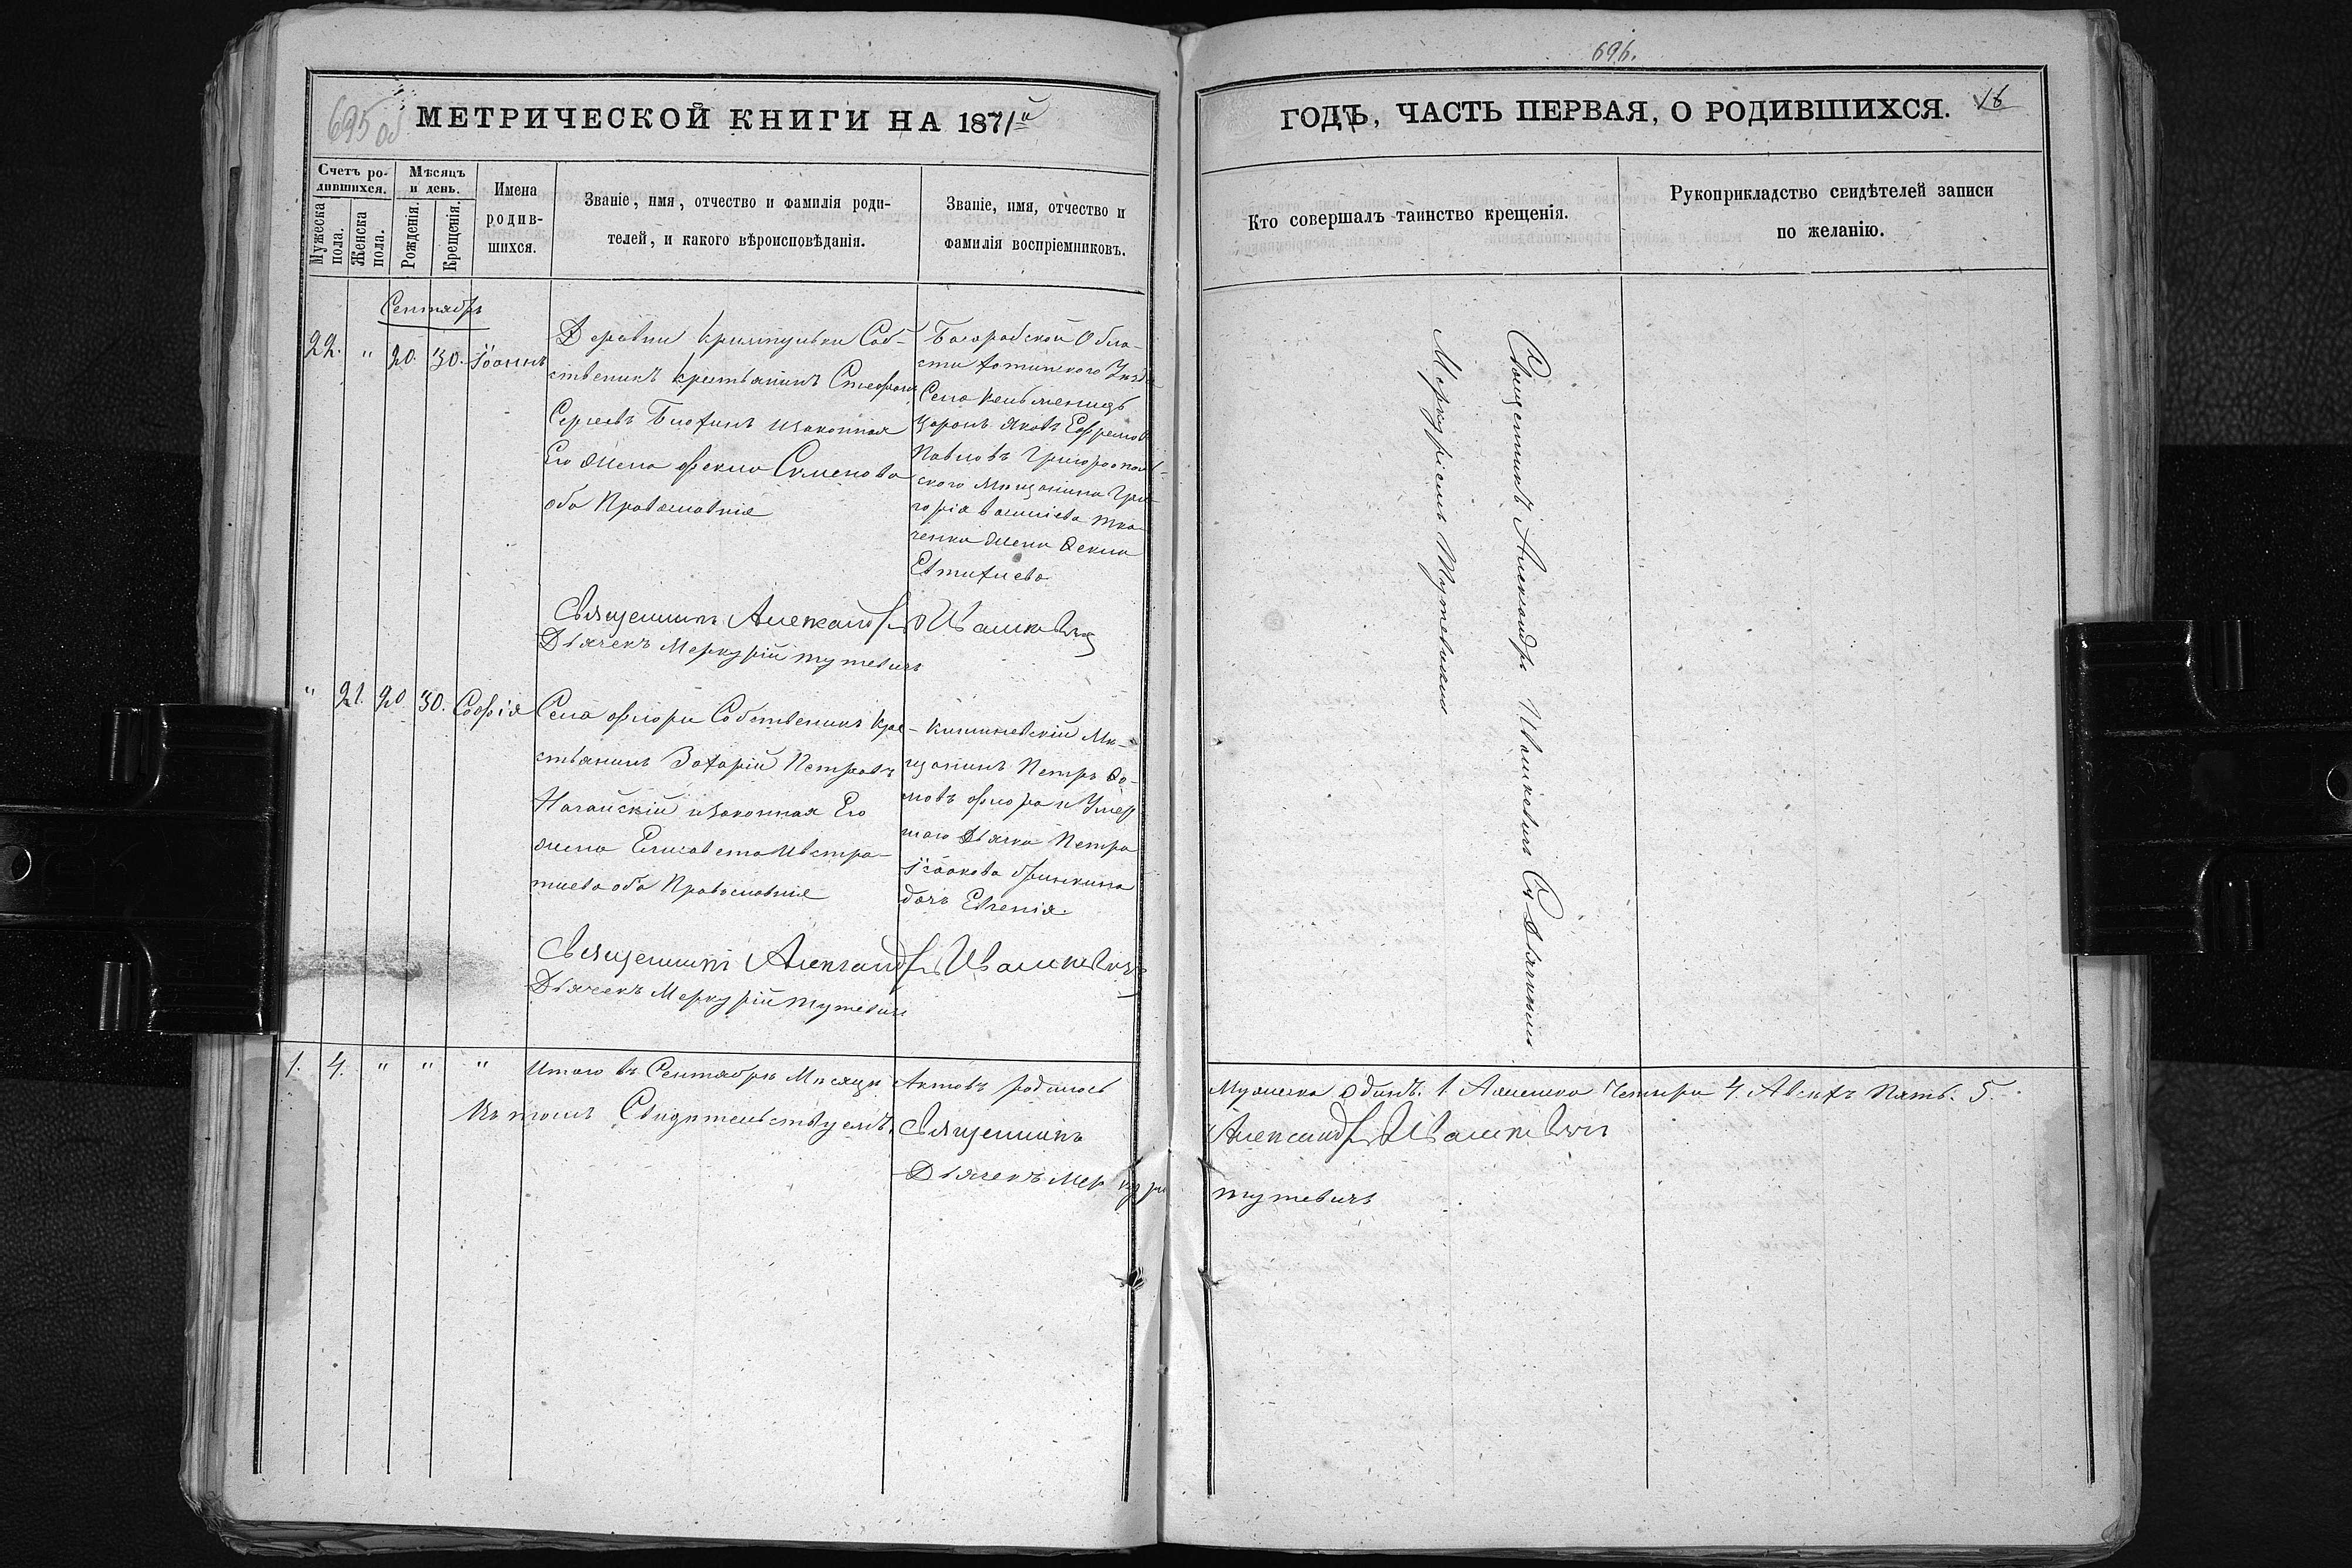 695 об
МЕТРИЧЕСКОЙ КНИГИ НА 1871й
Счетъ ро-
дившихся.
Мужеска пола.
Женска пола.
Мѣсяцъ
и день.
Рожденія.
Крещенія.
Имена
родив-
шихся.
Званіе, имя, отчество и фамилія роди-
телей, и какого вѣроисповѣданія.
Званіе, имя, отчество и
фамилія воспріемниковъ.
Сентябрь
22. " 20. 30. Іоаннъ
Деревни Соб-
ственикъ крестьянинъ Стефанъ
Сергеевъ изаконная
Его жена фекла Семенова
оба Православніе
Обла-
сти Хотинского Уезда
Села Кельменецъ
Яковъ Ефремовъ
Павловъ Григоріопол-
ского Мещанина Гри-
горія Тка-
ченка жена Фекла
Евтихиева
Священникъ Александръ Ивашкевичъ
Дьячекъ Меркурій Тутевичъ
" 21. 20. 30. Софія
Села флоры Собственикъ Кре-
стьянинъ Захарій Петровъ
Нагайскій изаконная Его
жена Елисавета Истра-
тиева оба Православніе
Кишиневскій Ме-
щанинъ Петръ Фо-
мовъ флора и Умер
шаго Дьячка Петра
Ісаакова
дочь Евгенія.
Священникъ Александръ Ивашкевичъ
Дьячекъ Меркурій Тутевичъ
1. 4. " " " Итого въ Сентябрѣ Месяце Актовъ родилось
Въ томъ Свидетельствуемъ. Священникъ
Дьячекъ Меркурій
696.
ГОДЪ, ЧАСТЬ ПЕРВАЯ, О РОДИВШИХСЯ. 16
Кто совершалъ таинство крещенія.
Рукоприкладство свидѣтелей записи
по желанію.
Священникъ Александръ Ивашкевичъ Съ Дьячкомъ
Меркуріемъ Тутевичемъ
Мужеска одинъ. 1 Аженска Четыри 4. Авсехъ Пять. 5.
Александръ Ивашкевичъ
Тутевичъ